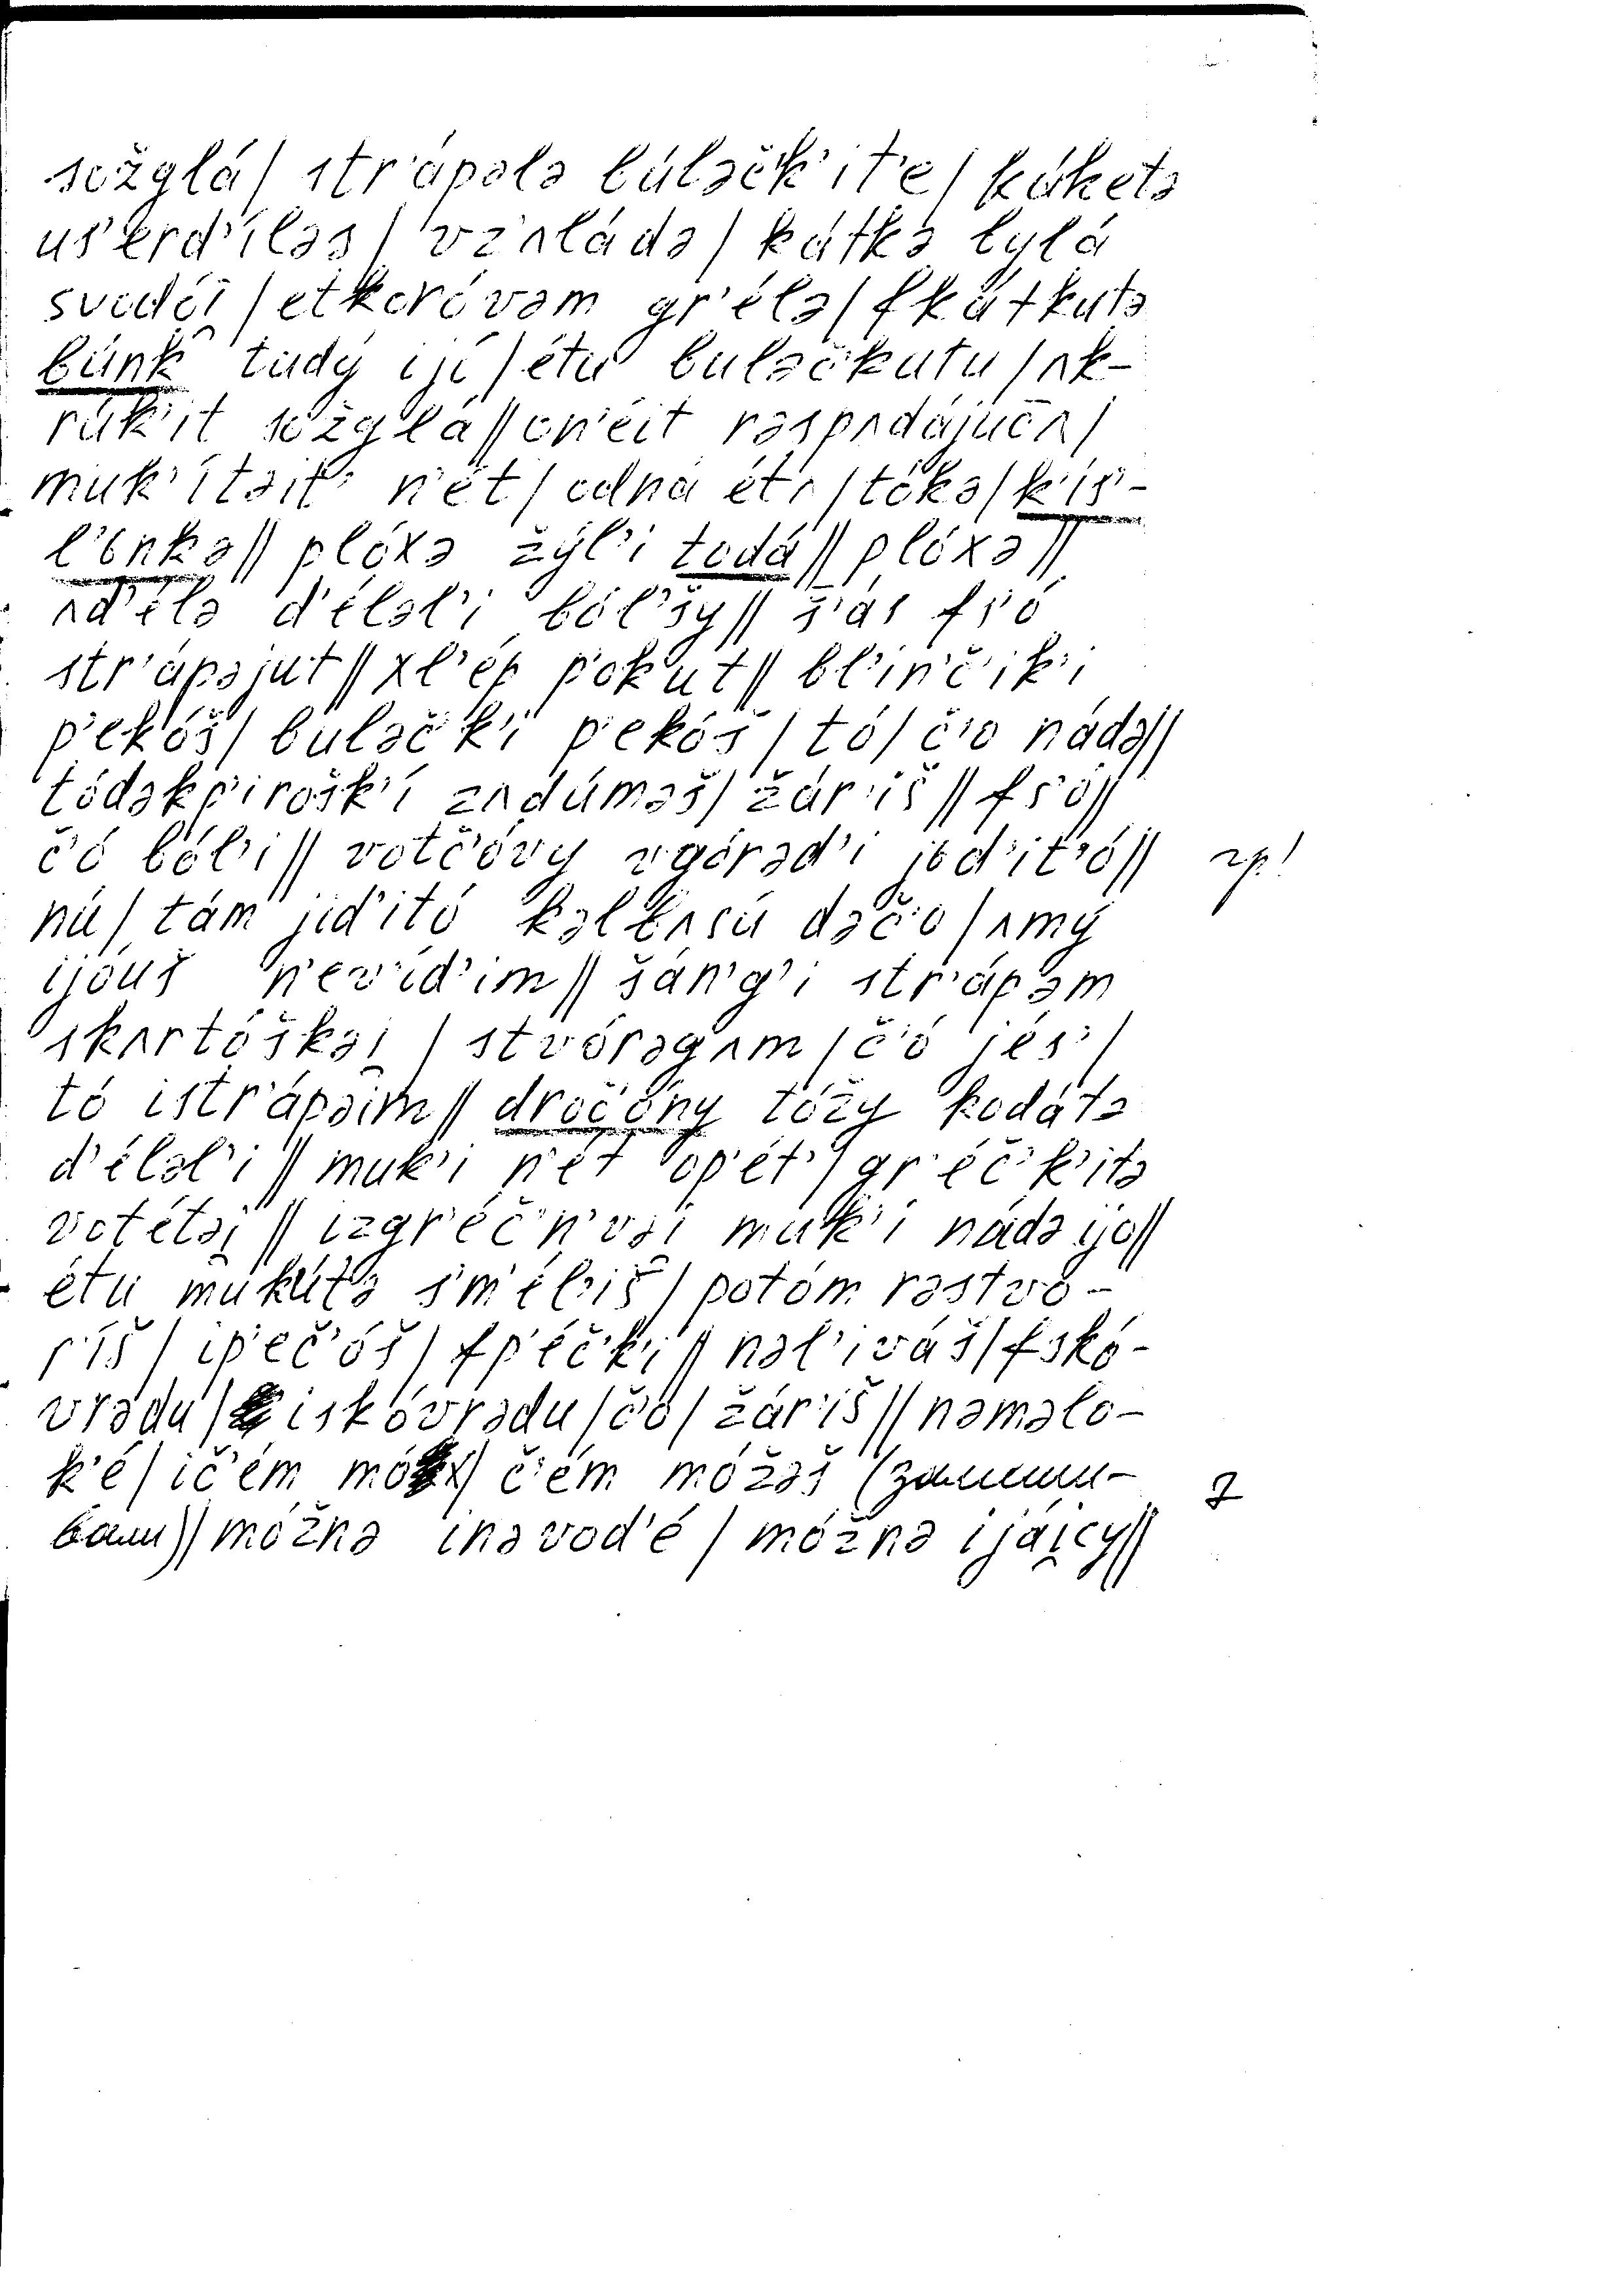 sožglá / str'ápələ búləčk'it'e / kákətə
us'erd'íləs / vz'ʌládə / kátkə bylá
svodój / etkoróvəm gr'élə / fkátkutə
búnk tudý ijí / étu buləčkutu / ʌk-
rúk'it sožglá // on'éit rəspʌdájučʌ /
muk'ítəit' n'ét / odná étʌ / tókə / k'ís'-
l'onkə // plóxə žýl'i todá // plóxə //
ʌd'élə d'éləl'i ból'šy // š'ás fs'ó
str'ápəjut // xl'ép p'okút // bl'in'č'ik'i
p'ekóš / buləčk'i p'ekóš / tó / č'o nádə //
tódəkp'irošk'í zʌdúməš / žár'iš // fs'ó //
č'ó ból'i // votč'óvy vgórəd'i jod'it'ó // гр!
nú / tám jid'itó kəlbʌsú dəč'o / ʌmý
ijóuš n'ev'íd'im // šán'g'i str'ápəm
skʌrtóškəj / stvórəgʌm / č'ó jés' /
tó istr'ápəim // droč'óny tóžy kodátə
d'éləl'i // muk'i n'ét op'ét' / gr'éč'k'itə
votétəj // izgr'éč'n'vəi muk'i nádə ijo //
étu mukútə s'm'él'iš / potóm rəstvo-
r'íš / ip'eč'óš / fp'éč'k'i // nəl'iváš / fskó-
vrədu / iskóvrədu / č'o / žár'iš // nəməlo-
k'é / ič'ém móx / č'ém móžəš (замеши-
ваш) // móžnə inəvod'é / móžnə ijájcy // ?